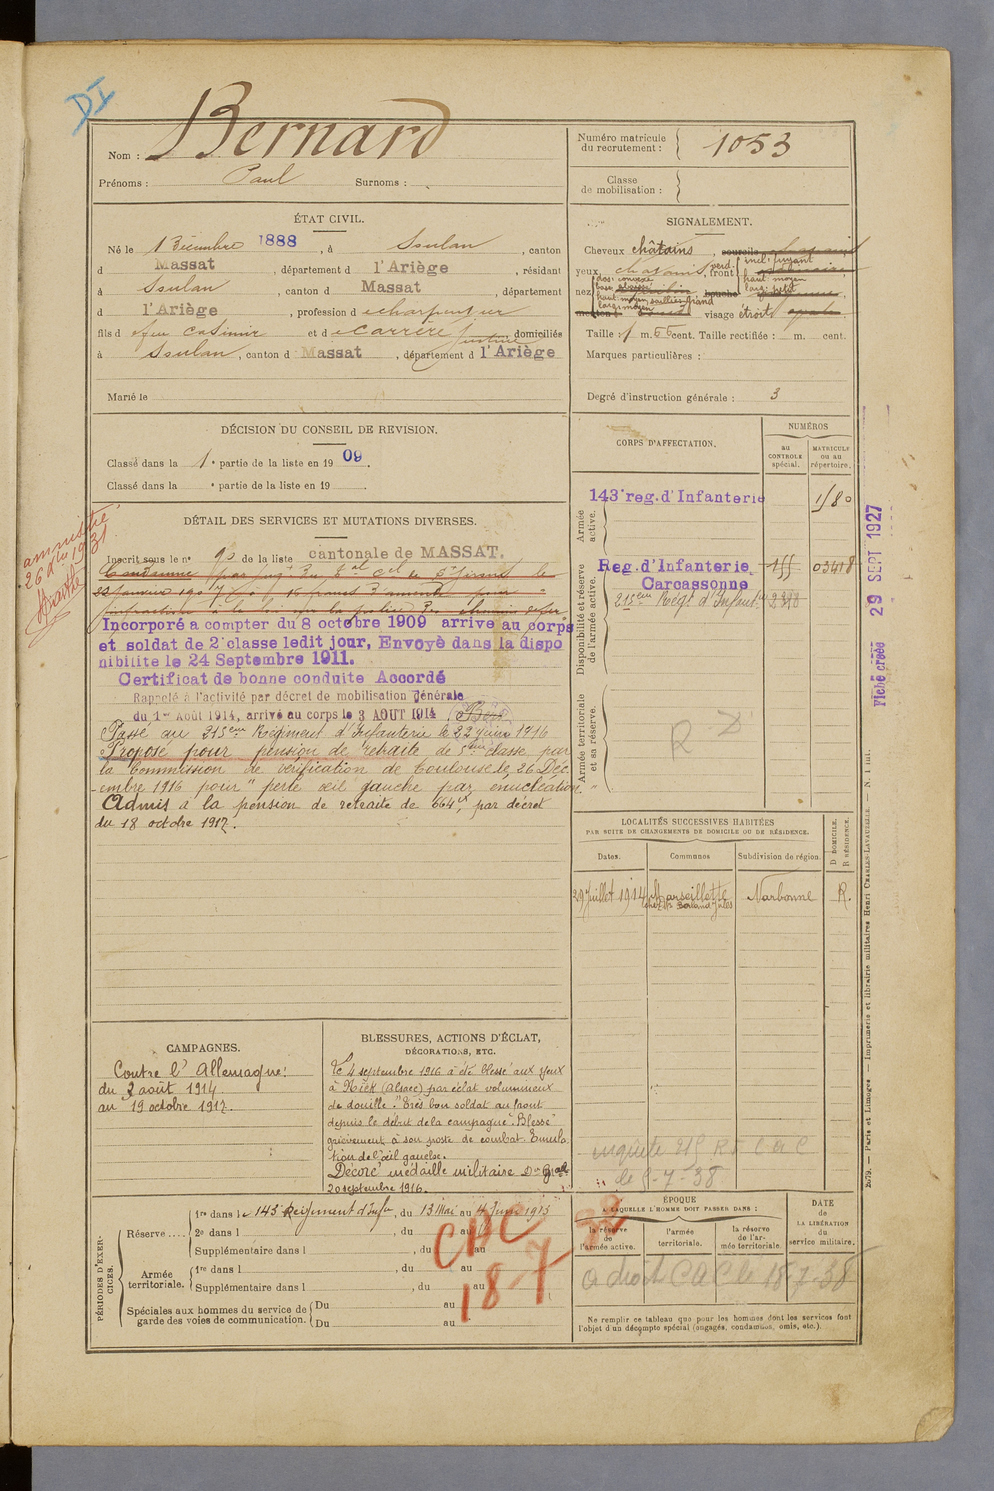 DI
Nom : Bernard
Prénoms : Paul Surnoms :
Numéro matricule du recrutement : 1053
Classe de mobilisation :
ÉTAT CIVIL.
Né le 1 Décembre 1888, à Soulan, canton
d Massat, département d l'Ariège, résidant
à Soulan, canton d Massat, département
d l'Ariège, profession d charpentier
fils d feu Casimir et d Carrère Justine domiciliés
à Soulan, canton d Massat, département d l'Ariège
Marié le
SIGNALEMENT.
Cheveux châtains, sourcils
yeux front incl: fuyant
haut: moyen
larg: petit
nez dos: convexe
haut: moyen, saillie: grand
larg: moyen
visage étroit
Taille : 1 m. 66 cent. Taille rectifiée : m. cent.
Marques particulières :
Degré d'instruction générale : 3
DÉCISION DU CONSEIL DE REVISION.
Classé dans la 1e partie de la liste en 1909.
Classé dans la e partie de la liste en 19
CORPS D'AFFECTATION.
NUMÉROS
au CONTROLE spécial.
MATRICULE ou au répertoire.
Armée active.
143e reg. d'Infanterie
Disponibilité et réserve de l'armée active.
Reg. d'Infanterie 03418
Carcassonne
215eme Régt d'Infant.
Armée territoriale et sa réserve.
DÉTAIL DES SERVICES ET MUTATIONS DIVERSES.
amnistié
26 dbre 1931
Inscrit sous le n° 90 de la liste cantonale de MASSAT.
Condamné par jugt du de St Girons le
22 janvier 1907 à 16 francs d'amende pour
infraction à la loi sur la police des chemins de fer
Incorporé a compter du 8 octobre 1909 arrive au corps
et soldat de 2e classe ledit jour, Envoyè dans la dispo
nibilite le 24 Septembre 1911.
Certificat de bonne conduite Accordé
Rappelé à l'activité par décret de mobilisation générale
du 1er Août 1914, arrivé au corps le 3 AOUT 1914
Passé au 215eme Régiment d'Infanterie le 22 juin 1916
Proposé pour pension de retraite de 5eme classe par
la Commission de vérification de Toulouse le 26 Déc
-embre 1916 pour "perte œil gauche par énucléation."
Admis à la pension de retraite de 664f, par décret
du 18 octobre 1917.
LOCALITÉS SUCCESSIVES HABITÉES
PAR SUITE DE CHANGEMENTS DE DOMICILE OU DE RÉSIDENCE.
Dates. Communes Subdivision de région. D. DOMICILE. R. RÉSIDENCE.
29 Juillet 1914 Marseillette Narbonne R.
CAMPAGNES.
Contre l'Allemagne:
du 3 août 1914
au 19 octobre 1917.
BLESSURES, ACTIONS D'ÉCLAT,
DÉCORATIONS, ETC.
Le 4 septembre 1916 a été blessé aux yeux
à (Alsace) par éclat volumineux
de douille. "Très bon soldat au front
depuis le début de la campagne. Blessé
grièvement à son poste de combat. Enucléa
tion de l'œil gauche.
Décoré médaille militaire
20 septembre 1916.
enquête 215 RI C a C
le 5-7-38
PÉRIODES D'EXERCICES.
Réserve....
1re dans le 143 Régiment d'Infie, du 13 Mai au 4 Juin 1913
2e dans l , du au
Supplémentaire dans l , du au
Armée territoriale.
1re dans l , du au
Supplémentaire dans l , du au
Spéciales aux hommes du service de garde des voies de communication.
Du au
Du au
CDC
18 7 38
ÉPOQUE
A LAQUELLE L'HOMME DOIT PASSER DANS :
la réserve de l'armée active.
l'armée territoriale.
la réserve de l'armée territoriale.
DATE DE LA LIBÉRATION du service militaire.
a droit CAC le 18-7-38
Ne remplir ce tableau que pour les hommes dont les services font
l'objet d'un décompte spécial (engagés, condamnés, omis, etc.).
Fiche créée 29 SEPT 1927
2679. — Paris et Limoges. — Imprimerie et librairie militaires Henri CHARLES-LAVAUZELLE. — N. 1 int.